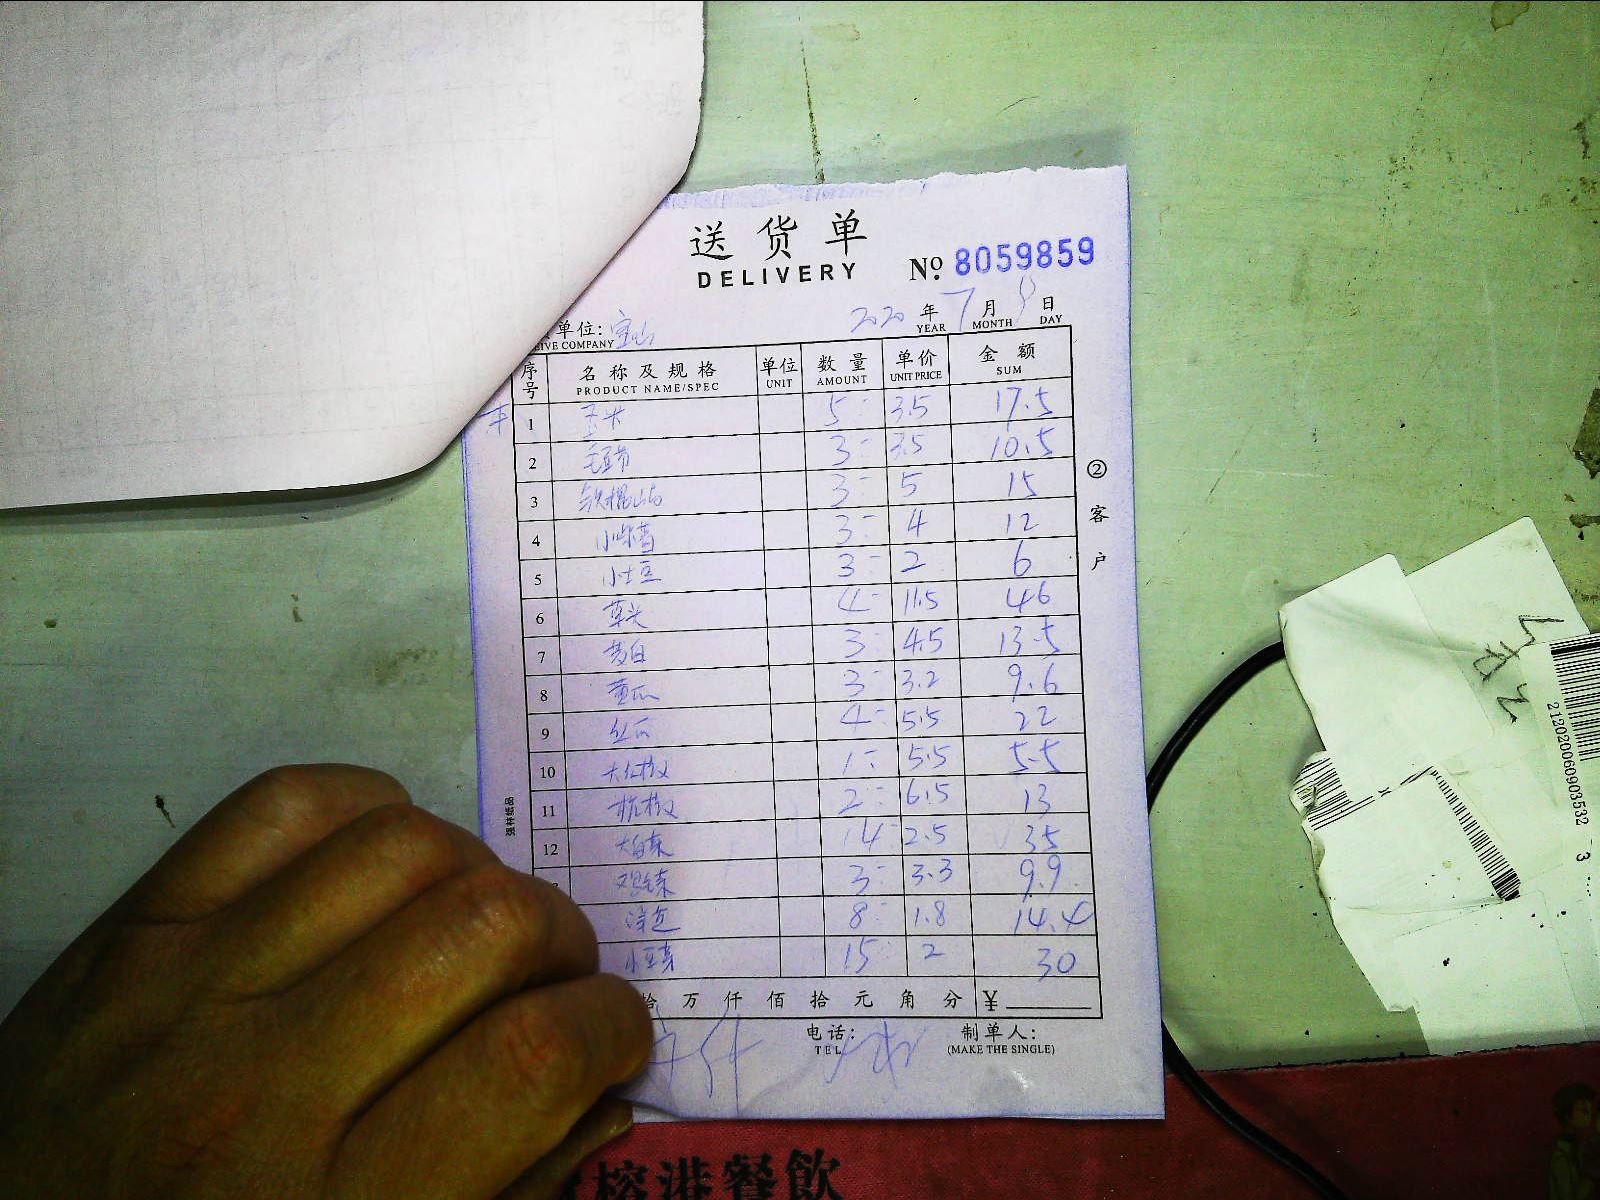 送货单
DELIVERY
No. 8059859
2020 年 7 月 日
YEAR MONTH DAY
单位: 宝山
EIVE COMPANY
序号 名称及规格 单位 数量 单价 金额
PRODUCT NAME/SPEC UNIT AMOUNT UNIT PRICE SUM
1 玉米 5 3.5 17.5
2 毛豆节 3 3.5 10.5
3 铁棍山药 3 5 15
4 小紫薯 3 4 12
5 小土豆 3 2 6
6 草头 4 11.5 46
7 茭白 3 4.5 13.5
8 黄瓜 3 3.2 9.6
9 丝瓜 4 5.5 22
10 大红椒 1 5.5 5.5
11 杭椒 2 6.5 13
12 大白菜 14 2.5 35
3 3.3 9.9
洋芋 8 1.8 14.4
小豆芽 15 2 30
拾 万 仟 佰 拾 元 角 分 ¥
电话: 制单人:
TEL (MAKE THE SINGLE)
② 客户
强林纸品
2120200609035323
榕港餐飲